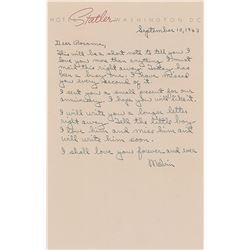 HOTEL Statler WASHINGTON DC
September 10, 1943
Dear Roxanne,
This will be a short note to tell you I
love you more than anything. I must
mail this right away. Today has
been a busy one. I have missed
you every second of it.
I sent you a small present for our
anniversary. I hope you will like it.
I will write you a longer letter
right away. Tell the little boy
I love him and miss him and
will write him soon.
I shall love you forever and ever
Melvin